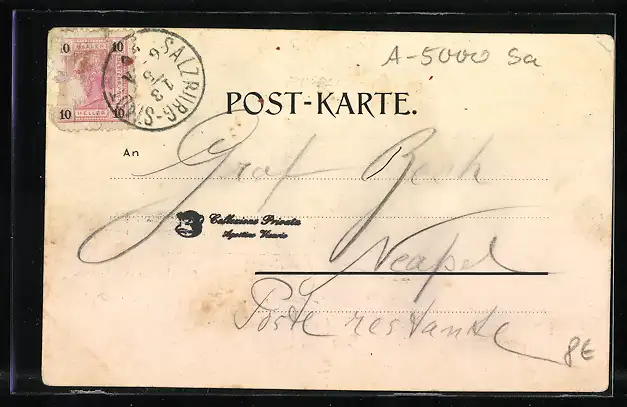 A-5000 Sa
10 10
HELLER
10 10
SALZBURG-STADT
POST-KARTE.
An
Graf Besh
Collezione Privata
Neapel
Poste restante
8€